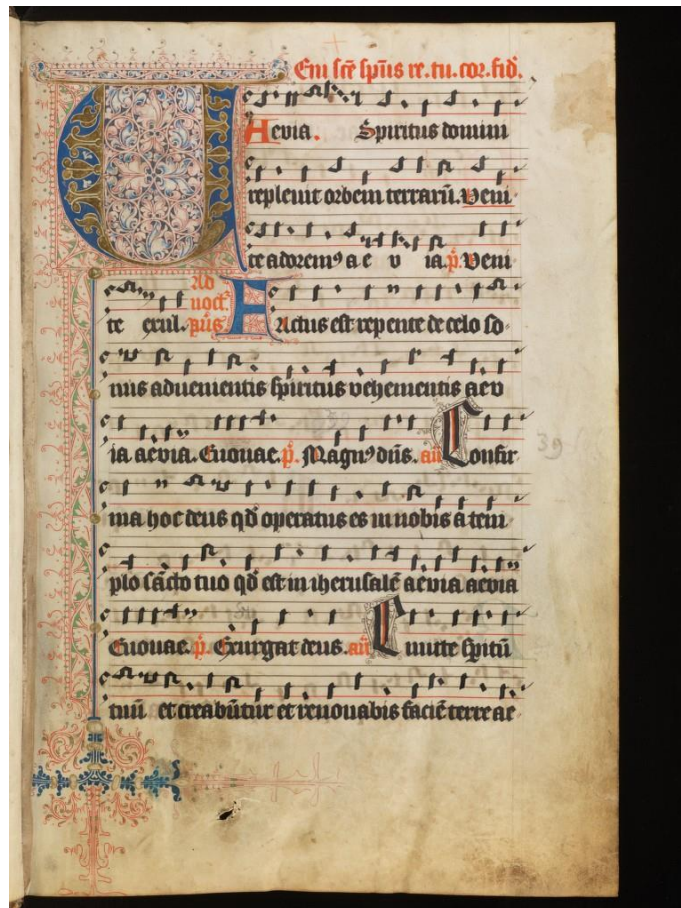 Veni scē spūs re.tu.cor.fid.
Aevia. Spiritus domini
replevit orbem terrarū. Veni
te adoremꝰ a e v ia. p̄. Veni
te exul. Ad noct. pūs Factus est repente de celo so
nus advenientis spiritus vehementis aev
ia aevia. Euouae. p̄. Magnꝰ dūs. añ Confir
ma hoc deus qd̄ operatus es in nobis a tem
plo sācto tuo qd̄ est in iherusalē aevia aevia
Euouae. p̄. Exurgat deus. añ Emitte spitū
tuū et creabūtur et renovabis faciē terre ae
39